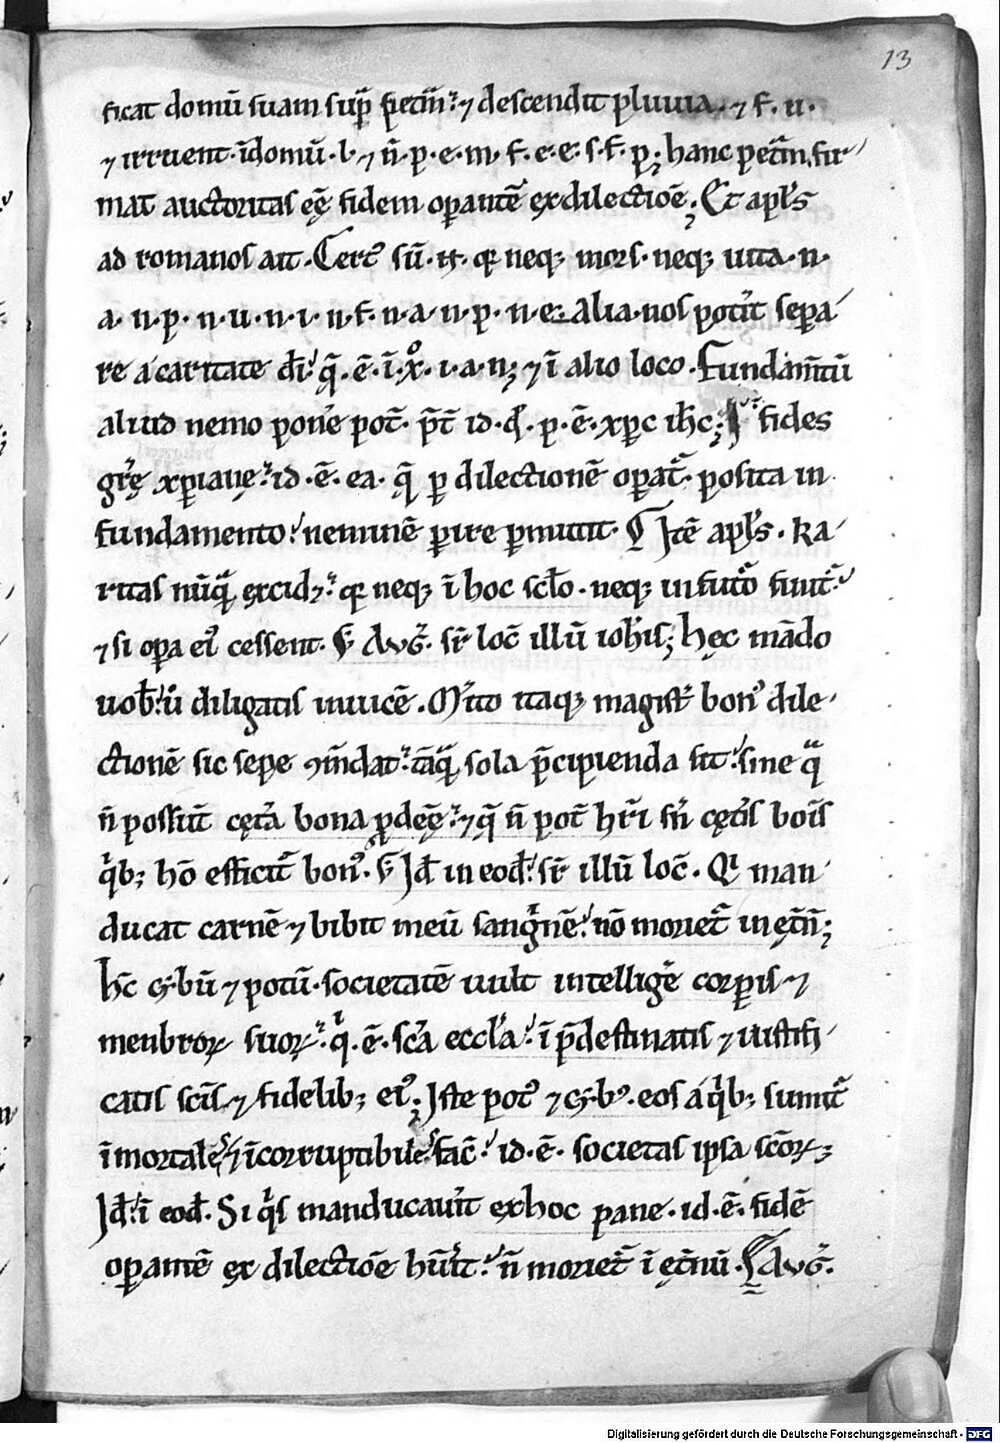 13
ficat domū suam sup̄ petrā · ⁊ descendit pluuia · ⁊ f · u ·
⁊ irruent · ī domū · l · ⁊ n̄ · p · e · m · f · e · e · s · f · p · hanc petrā fir
mat auctoritas eē fidem op̄antē ex dilectiōe · Et apl's
ad romanos ait · Cert' sū · · q neq; mors · neq; uita · n ·
a · n · p · n · u · n · i · n · f · n · a · n · p · n · e · alia · nos pot'it sepa
re a caritate dī q̄ · ē · ī · x° · i · a · n ; ⁊ ī alio loco · Fundam̄tū
aliud nemo pon'e pot̄ · p̄t̄ id · q̄ · p · ē · xpc ihc ; fides
gr̄ę xpiane · id · ē · ea · q̄ p dilectionē opat' · posita in
fundamento · neminē pire pmittit · Itē apl's · Ka
ritas nūq̄ excid; · q neq; ī hoc sclo · neq; in futo finit'
⁊ si opa ei' cessent · Auḡ · sr̄ loc̄ illū ioh'is ; hec mādo
uob' · ū diligatis inuicē · M'ito itaq; magist' bon' dile
ctionē sic sepe ꝯm̄dat · tāq̄ sola p̄cipienda sit · sine q̄
n̄ possut̄ cęt'a bona pdeē · ⁊ q̄ n̄ pot̄ hr̄i sn̄ cęt'is bōis
q'b; hō efficit' bon' · Id̄ in eod̄ · sr̄ illū loc̄ · Qi man
ducat carnē ⁊ bibit meū sanguinē · nō moriet' in ęt'n̄ ;
H̄c cybū ⁊ potū · societatē uult intellig'e corpis ⁊
menbroꝝ suoꝝ · q̄ · ē · sc̄a eccl'a · ī p̄destinatis ⁊ iustifi
catis sc̄is ⁊ fidelib; ei' ; Iste pot' ⁊ cyb' · eos a q'b; sumit'
īmortales ⁊ īcorruptibiles fac̄ · id · ē · societas ipsa sc̄oꝝ ;
Id̄ ī eod̄ · Si q's manducau'it ex hoc pane · id · ē · fidē
opantē ex dilectiōe hūit · n̄ moriet' ī ęt'nū · Auḡ ·
Digitalisierung gefördert durch die Deutsche Forschungsgemeinschaft - DFG